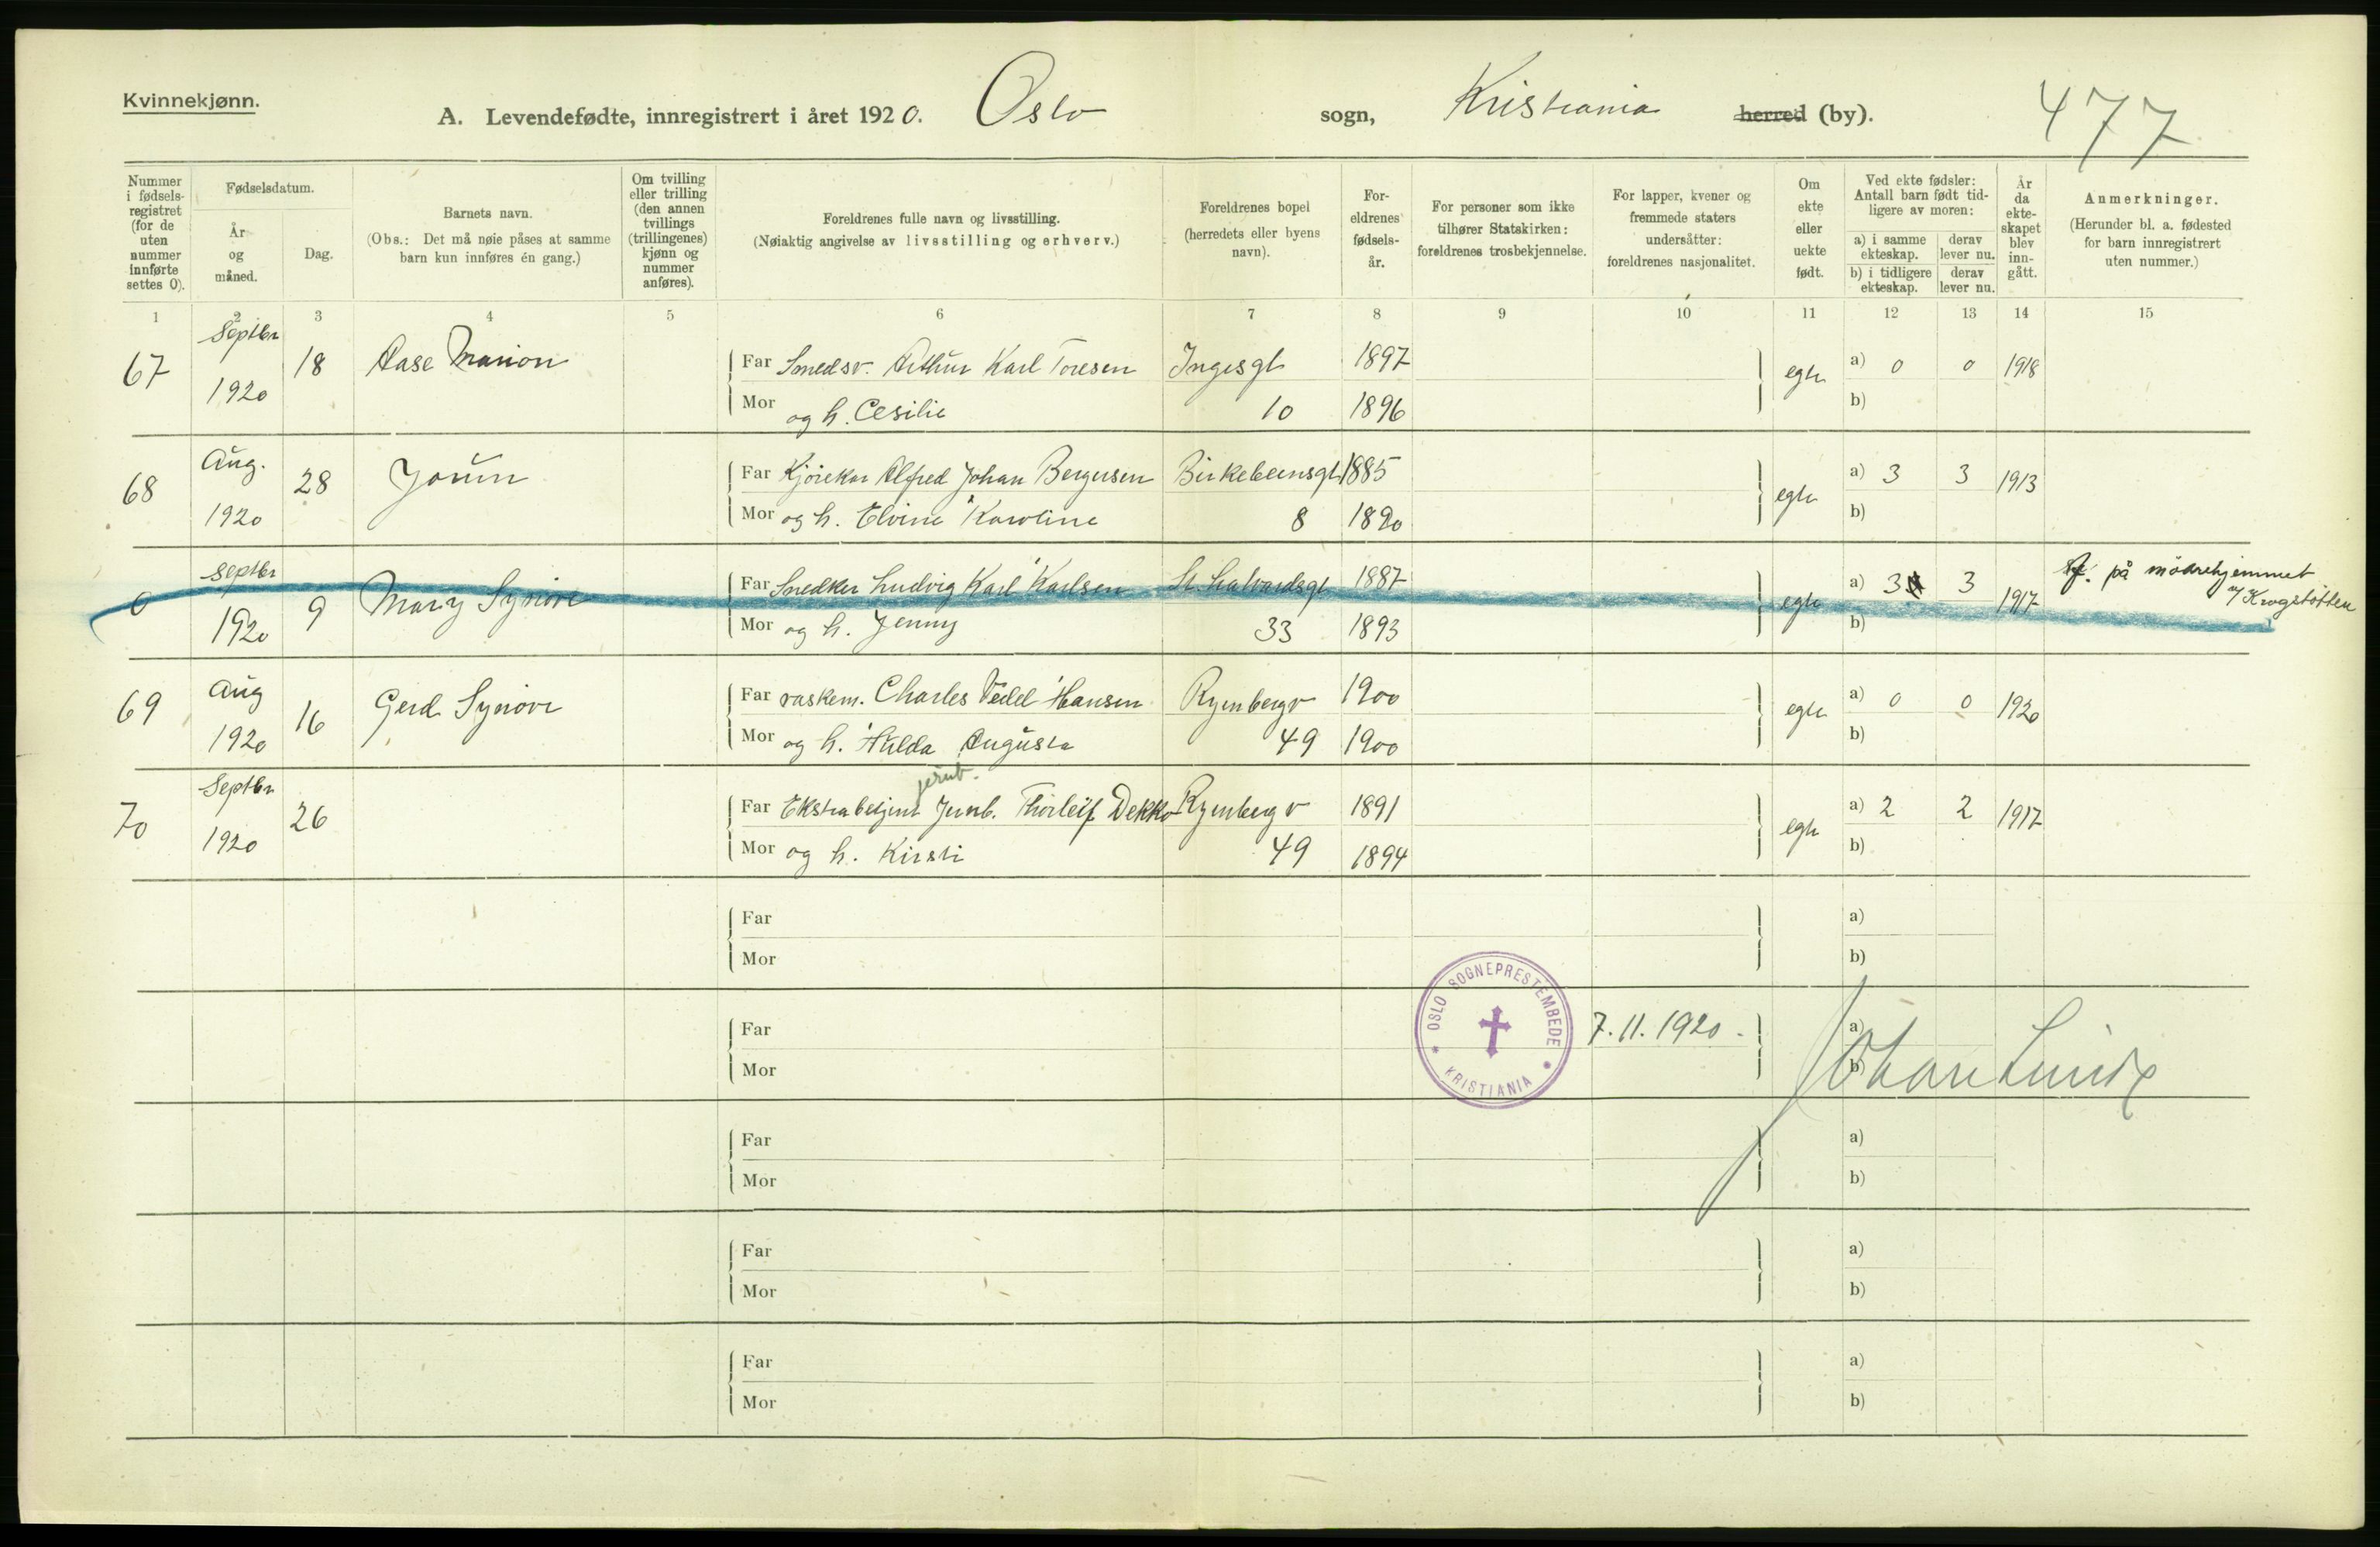 Kvinnekjønn.
A. Levendefødte, innregistrert i året 1920. Oslo sogn, Kristiania herred (by). 477
Nummer i fødselsregistret (for de uten nummer innførte settes 0).
Fødselsdatum.
År og måned.
Dag.
Barnets navn.
(Obs.: Det må nøie påses at samme barn kun innføres én gang.)
Om tvilling eller trilling (den annen tvillings (trillingenes) kjønn og nummer anføres).
Foreldrenes fulle navn og livsstilling.
(Nøiaktig angivelse av livsstilling og erhverv.)
Foreldrenes bopel (herredets eller byens navn).
Foreldrenes fødselsår.
For personer som ikke tilhører Statskirken: foreldrenes trosbekjennelse.
For lapper, kvener og fremmede staters undersåtter: foreldrenes nasjonalitet.
Om ekte eller uekte født.
Ved ekte fødsler: Antall barn født tidligere av moren:
a) i samme ekteskap. derav lever nu.
b) i tidligere ekteskap. derav lever nu.
År da ekteskapet blev inngått.
Anmerkninger.
(Herunder bl. a. fødested for barn innregistrert uten nummer.)
1 2 3 4 5 6 7 8 9 10 11 12 13 14 15
67 Septbr 1920 18 Aase Marion
Far Smedsv. Arthur Karl Toresen Ingesgt 1897 egte a) 0 0 1918
Mor og h. Cesilie 10 1896 b)
68 Aug. 1920 28 Jorun
Far Kjørekar Alfred Johan Bergersen Birkebeensgt 1885 egte a) 3 3 1913
Mor og h. Elvine Karoline 8 1890 b)
0 Septbr 1920 9 Mary Synøve
Far Snedker Ludvig Karl Karlsen St. Halvardsgt 1887 egte a) 3 3 1917 på mödrehjemmet v/ Krogstøtten
Mor og h. Jenny 33 1893 b)
69 Aug 1920 16 Gerd Synøve
Far vaskem. Charles Vedel Hansen Ryenbergv 1900 egte a) 0 0 1920
Mor og h. Hulda Augusta 49 1900 b)
jernb.
70 Septbr 1920 26
Far Ekstrabetjent Jernb. Thorleif Dekko Ryenbergv 1891 egte a) 2 2 1917
Mor og h. Kirsti 49 1894 b)
Far a)
Mor b)
OSLO SOGNEPRESTEMBEDE * KRISTIANIA *
Far 7.11.1920. a)
Mor b)
Johan Lunde
Far a)
Mor b)
Far a)
Mor b)
Far a)
Mor b)